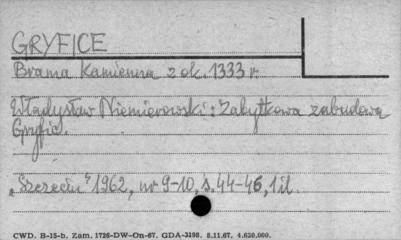 GRYFICE
Brama Kamienna z ok. 1333 r.
Władysław Niemierowski: Zabytkowa zabudowa
Gryfic.
„Szczecin" 1962, nr 9-10, s. 44-46, 1 il.
CWD. B-15-b. Zam. 1726-DW-On-67. GDA-3198. 8.11.67. 4.620.000.